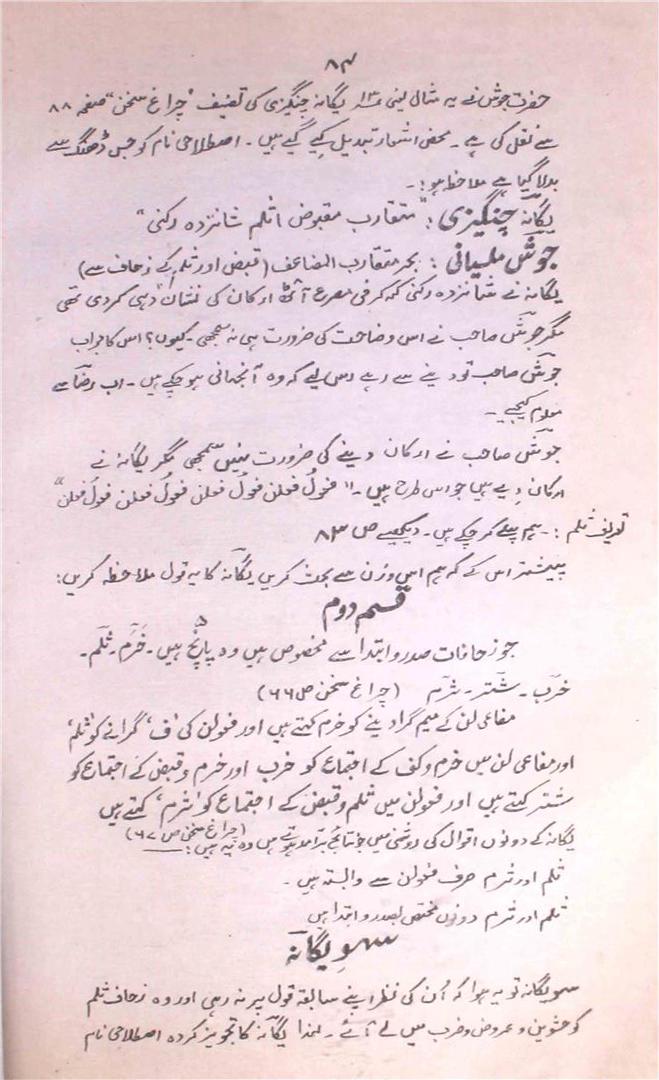 ۸۴
حضرت جوش نے یہ مثال لینی ۱۳ یگانہ چنگیزی کی تصنیف "چراغ سخن" صفحہ ۸۸
سے نقل کی ہے۔ محض اشعار تبدیل کیے گیے ہیں۔ اصطلاحی نام کو جس ڈھنگ سے
بدلا گیا ہے ملاحظہ ہو:۔
یگانہ چنگیزی : "متقارب مقبوض اثلم شانزدہ رکنی"
جوش ملسیانی : بحر متقارب المضاعف (قبض اور ثلم کے زحاف سے)
یگانہ نے شانزدہ رکنی کہہ کر فی مصرع آٹھ ارکان کی نشان دہی کر دی تھی
مگر جوش صاحب نے اس وضاحت کی ضرورت ہی نہ سمجھی۔ کیوں؟ اس کا جواب
جوش صاحب تو دینے سے رہے اس لیے کہ وہ آنجہانی ہو چکے ہیں۔ اب رضا سے
معلوم کیجیے۔
جوش صاحب نے ارکان دینے کی ضرورت نہیں سمجھی مگر یگانہ نے
ارکان دیے ہیں جو اس طرح ہیں۔ "فعولُ فعلن فعولُ فعلن فعولُ فعلن فعولُ فعلن"
تعریف ثلم :۔ ہم پہلے کر چکے ہیں۔ دیکھیے ص ۸۳
پیشتر اس کے کہ ہم اس وزن سے بحث کریں یگانہ کا یہ قول ملاحظہ کریں:
قسم دوم
جو زحافات صدر و ابتدا سے مخصوص ہیں وہ پانچ ۵ ہیں۔ خرم۔ ثلم۔
خرب۔ شتر۔ ثرم (چراغ سخن ص ۶۶)
مفاعی لن کے میم گرا دینے کو خرم کہتے ہیں اور فعولن کی 'ف' گرانے کو 'ثلم'
اور مفاعی لن میں خرم و کف کے اجتماع کو خرب اور خرم و قبض کے اجتماع کو
شتر کہتے ہیں اور فعولن میں ثلم و قبض کے اجتماع کو 'ثرم' کہتے ہیں
(چراغ سخن ص ۶۷)
یگانہ کے دونوں اقوال کی روشنی میں جو نتائج برآمد ہوتے ہیں وہ یہ ہیں:
ثلم اور ثرم صرف فعولن سے وابستہ ہیں۔
ثلم اور ثرم دونوں مختص بصدر و ابتدا ہیں
سہوِ یگانہ
سہو یگانہ تو یہ ہوا کہ اُن کی نظر اپنے سابقہ قول پر نہ رہی اور وہ زحاف ثلم
کو حشوین و عروض و ضرب میں لے آئے۔ لہذا یگانہ کا تجویز کردہ اصطلاحی نام